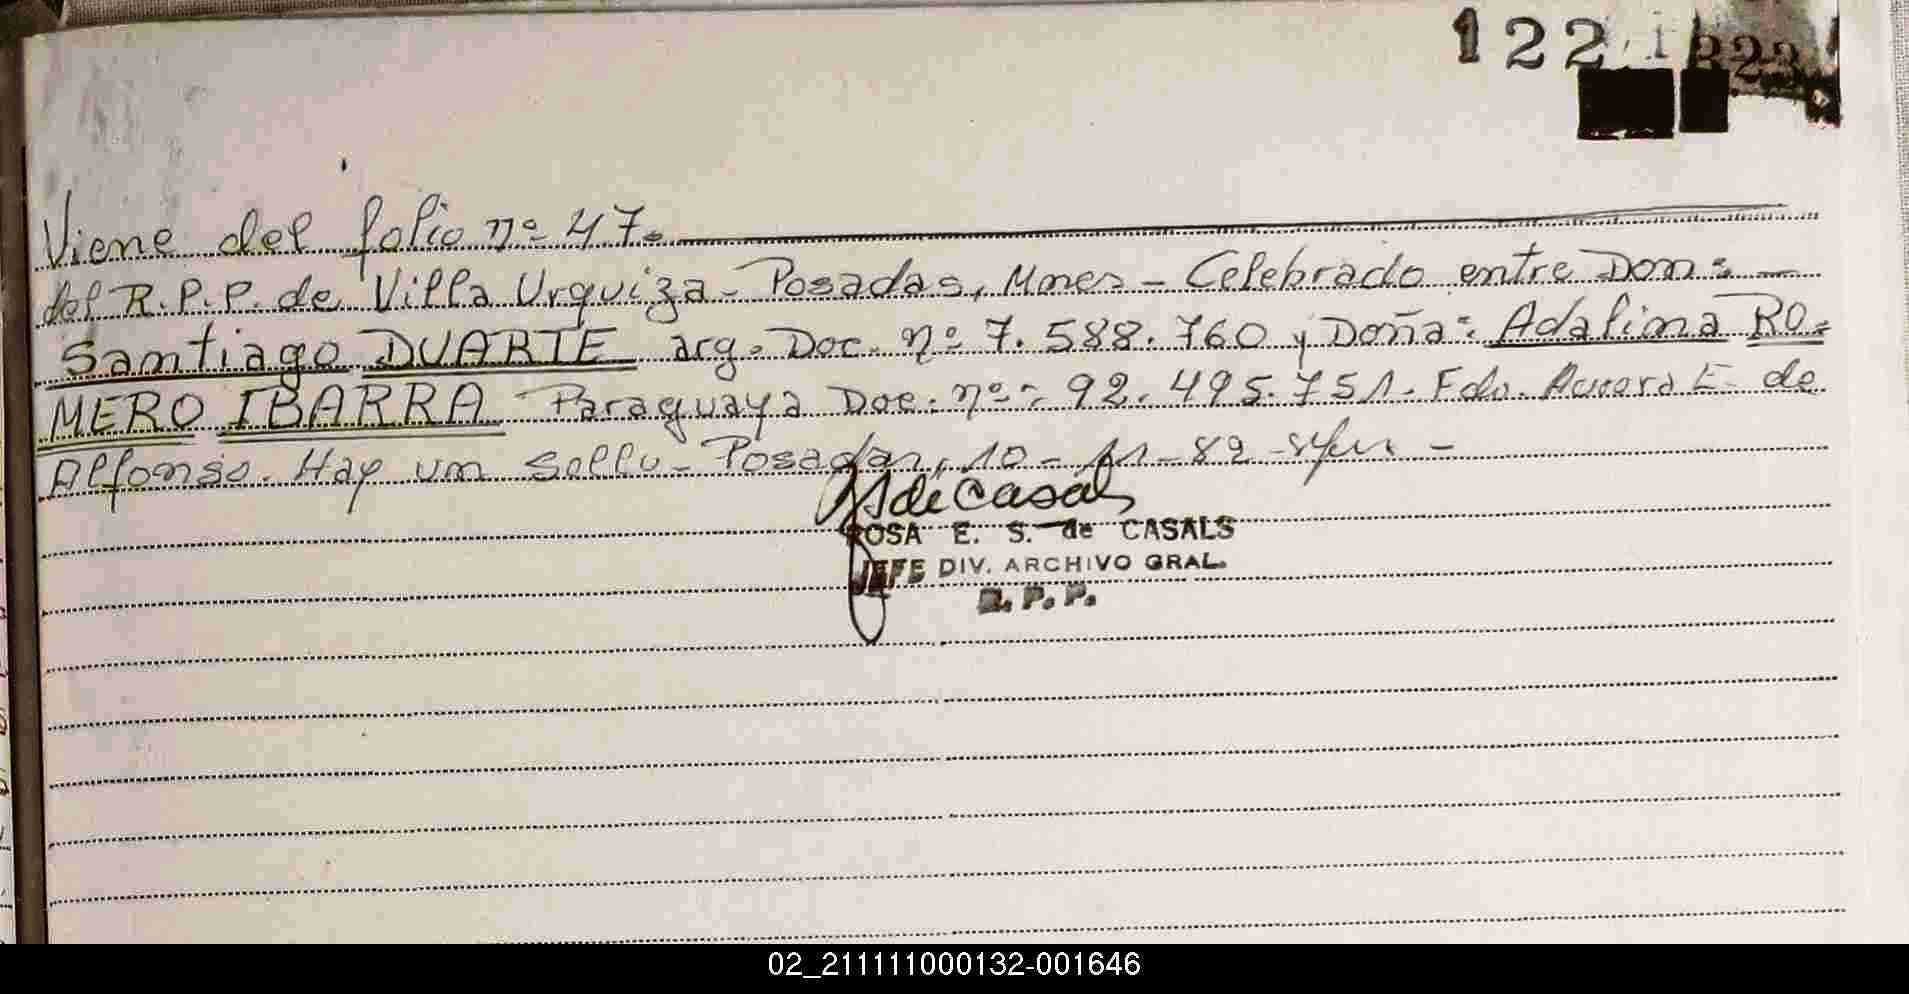 122
Viene del folio nº 47.
del R.P.P. de Villa Urquiza - Posadas, Mnes - Celebrado entre Don: -
Santiago DUARTE arg. Doc. nº 7.588.760 y Doña: Adalina RO=
MERO IBARRA Paraguaya Doc. nº: 92.495.751. Fdo. Aurora E. de
Alfonso. Hay un sello - Posadas, 10 - 11 - 82 -
de Casals
ROSA E. S. de CASALS
JEFE DIV. ARCHIVO GRAL.
R. P. P.
02_211111000132-001646